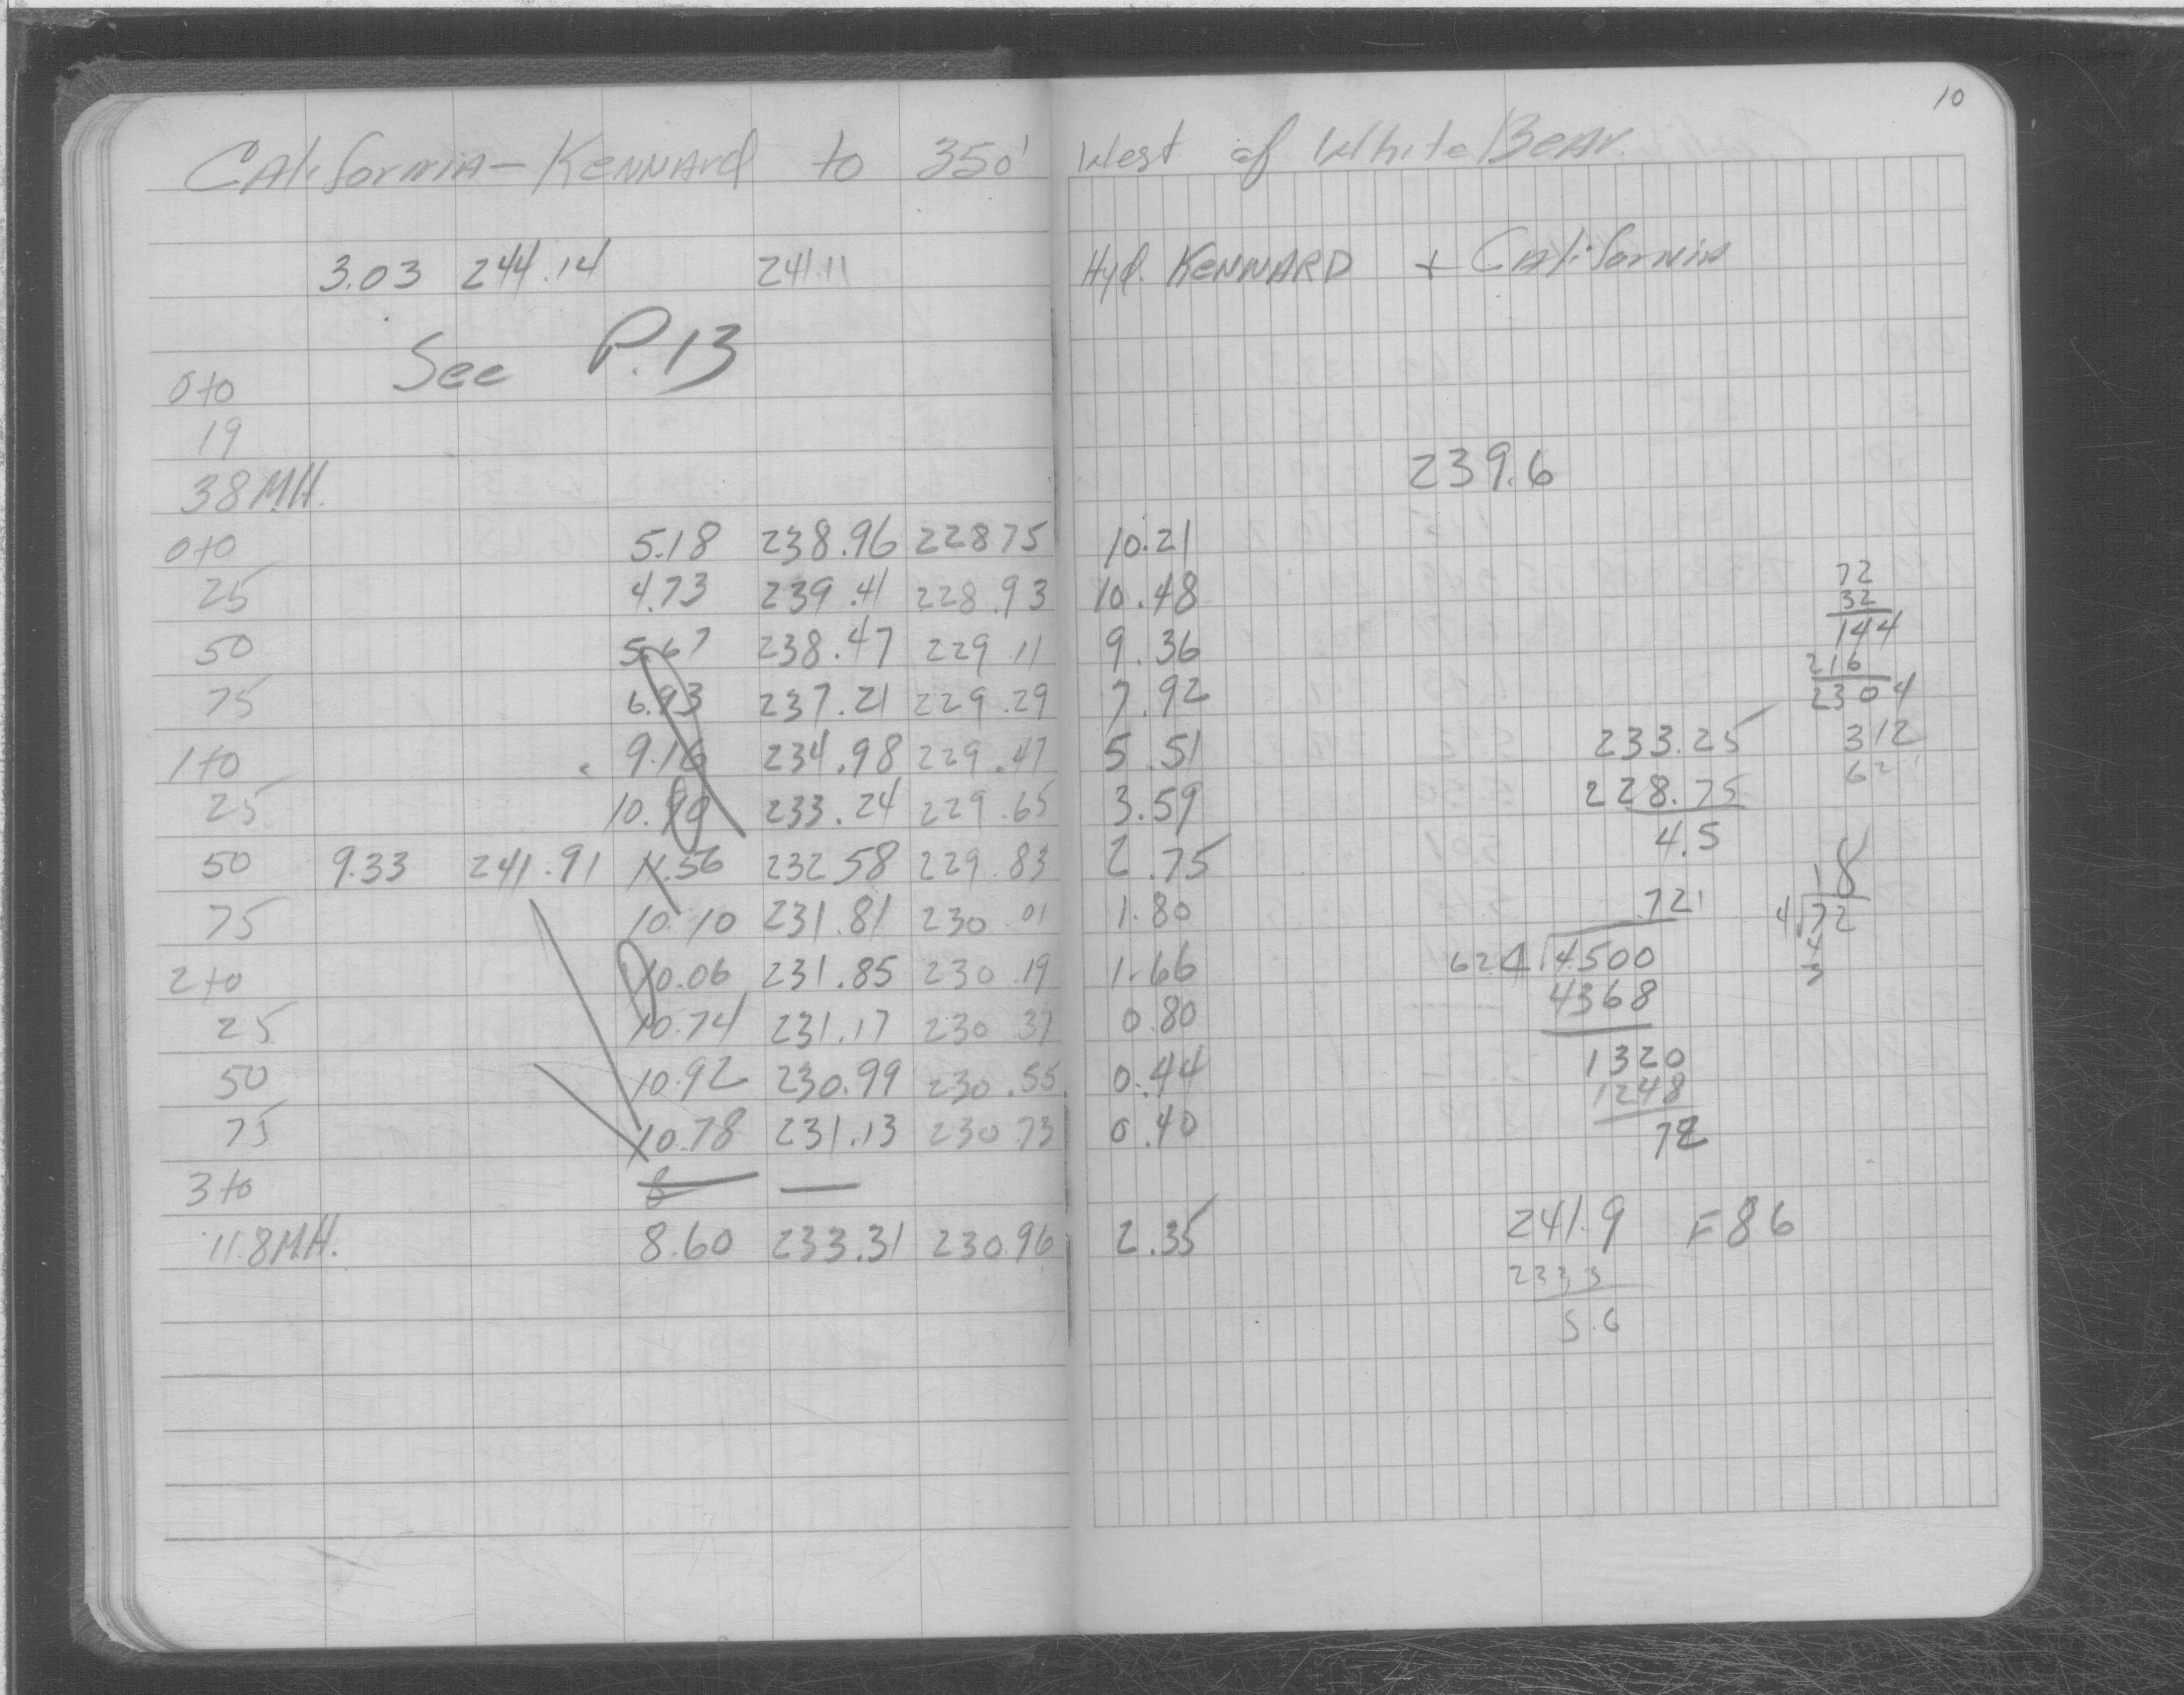 10
California - Kennard to 350' West of White Bear.
3.03 244.14 241.11 Hyd. KENNARD + California
See P.13
0+0
19
38 M.H. 239.6
0+0 5.18 238.96 228 75 10.21
25 4.73 239.41 228.93 10.48
50 5.67 238.47 229 11 9.36
75 6.93 237.21 229.29 7.92
1+0 9.16 234.98 229.47 5.51
25 10.90 233.24 229.65 3.59
50 9.33 241.91 11.56 232 58 229.83 2.75
75 10.10 231.81 230 01 1.80
2+0 10.06 231.85 230 19 1.66
25 10.74 231.17 230 37 0.80
50 10.92 230.99 230.55 0.44
75 10.78 231.13 230 73 0.40
3+0
11.8 M.H. 8.60 233.31 230.96 2.35
72
32
144
216
2304
312
62
233.25
228.75
4.5
18
4 72
4
3
721
624 4500
4368
1320
1248
72
241.9 F 8 6
233 3
5.6